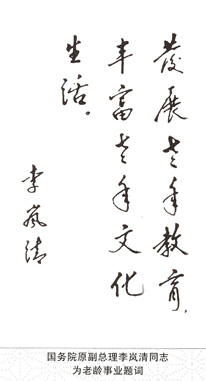 发展老年教育，
丰富老年文化
生活。
李岚清
国务院原副总理李岚清同志
为老龄事业题词